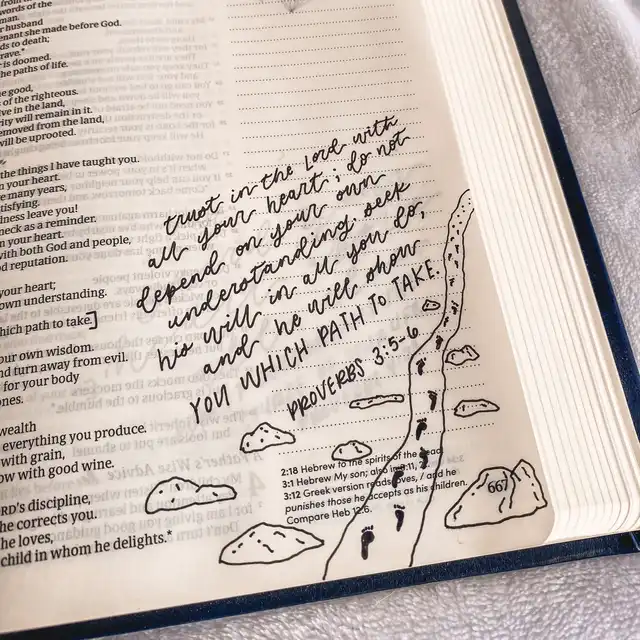 words of the
man.
r husband
enant she made before God.
ds to death;
rave.*
r is doomed.
he paths of life.
he good,
s of the righteous.
ive in the land,
rity will remain in it.
emoved from the land,
will be uprooted.
the things I have taught you.
n your heart.
e many years,
tisfying.
lness leave you!
neck as a reminder.
n your heart.
with both God and people,
d reputation.
your heart;
own understanding.
hich path to take.]
our own wisdom.
nd turn away from evil.
for your body
ones.
wealth
everything you produce.
with grain,
ow with good wine.
ORD's discipline,
he corrects you.
he loves,
child in whom he delights.*
trust in the Lord with
all your heart; do not
depend on your own
understanding. seek
his will in all you do,
and he will show
YOU WHICH PATH TO TAKE.
PROVERBS 3:5-6
2:18 Hebrew to the spirits of the dead.
3:1 Hebrew My son; also in 3:11,
3:12 Greek version reads loves, / and he
punishes those he accepts as his children.
Compare Heb 12:6.
667